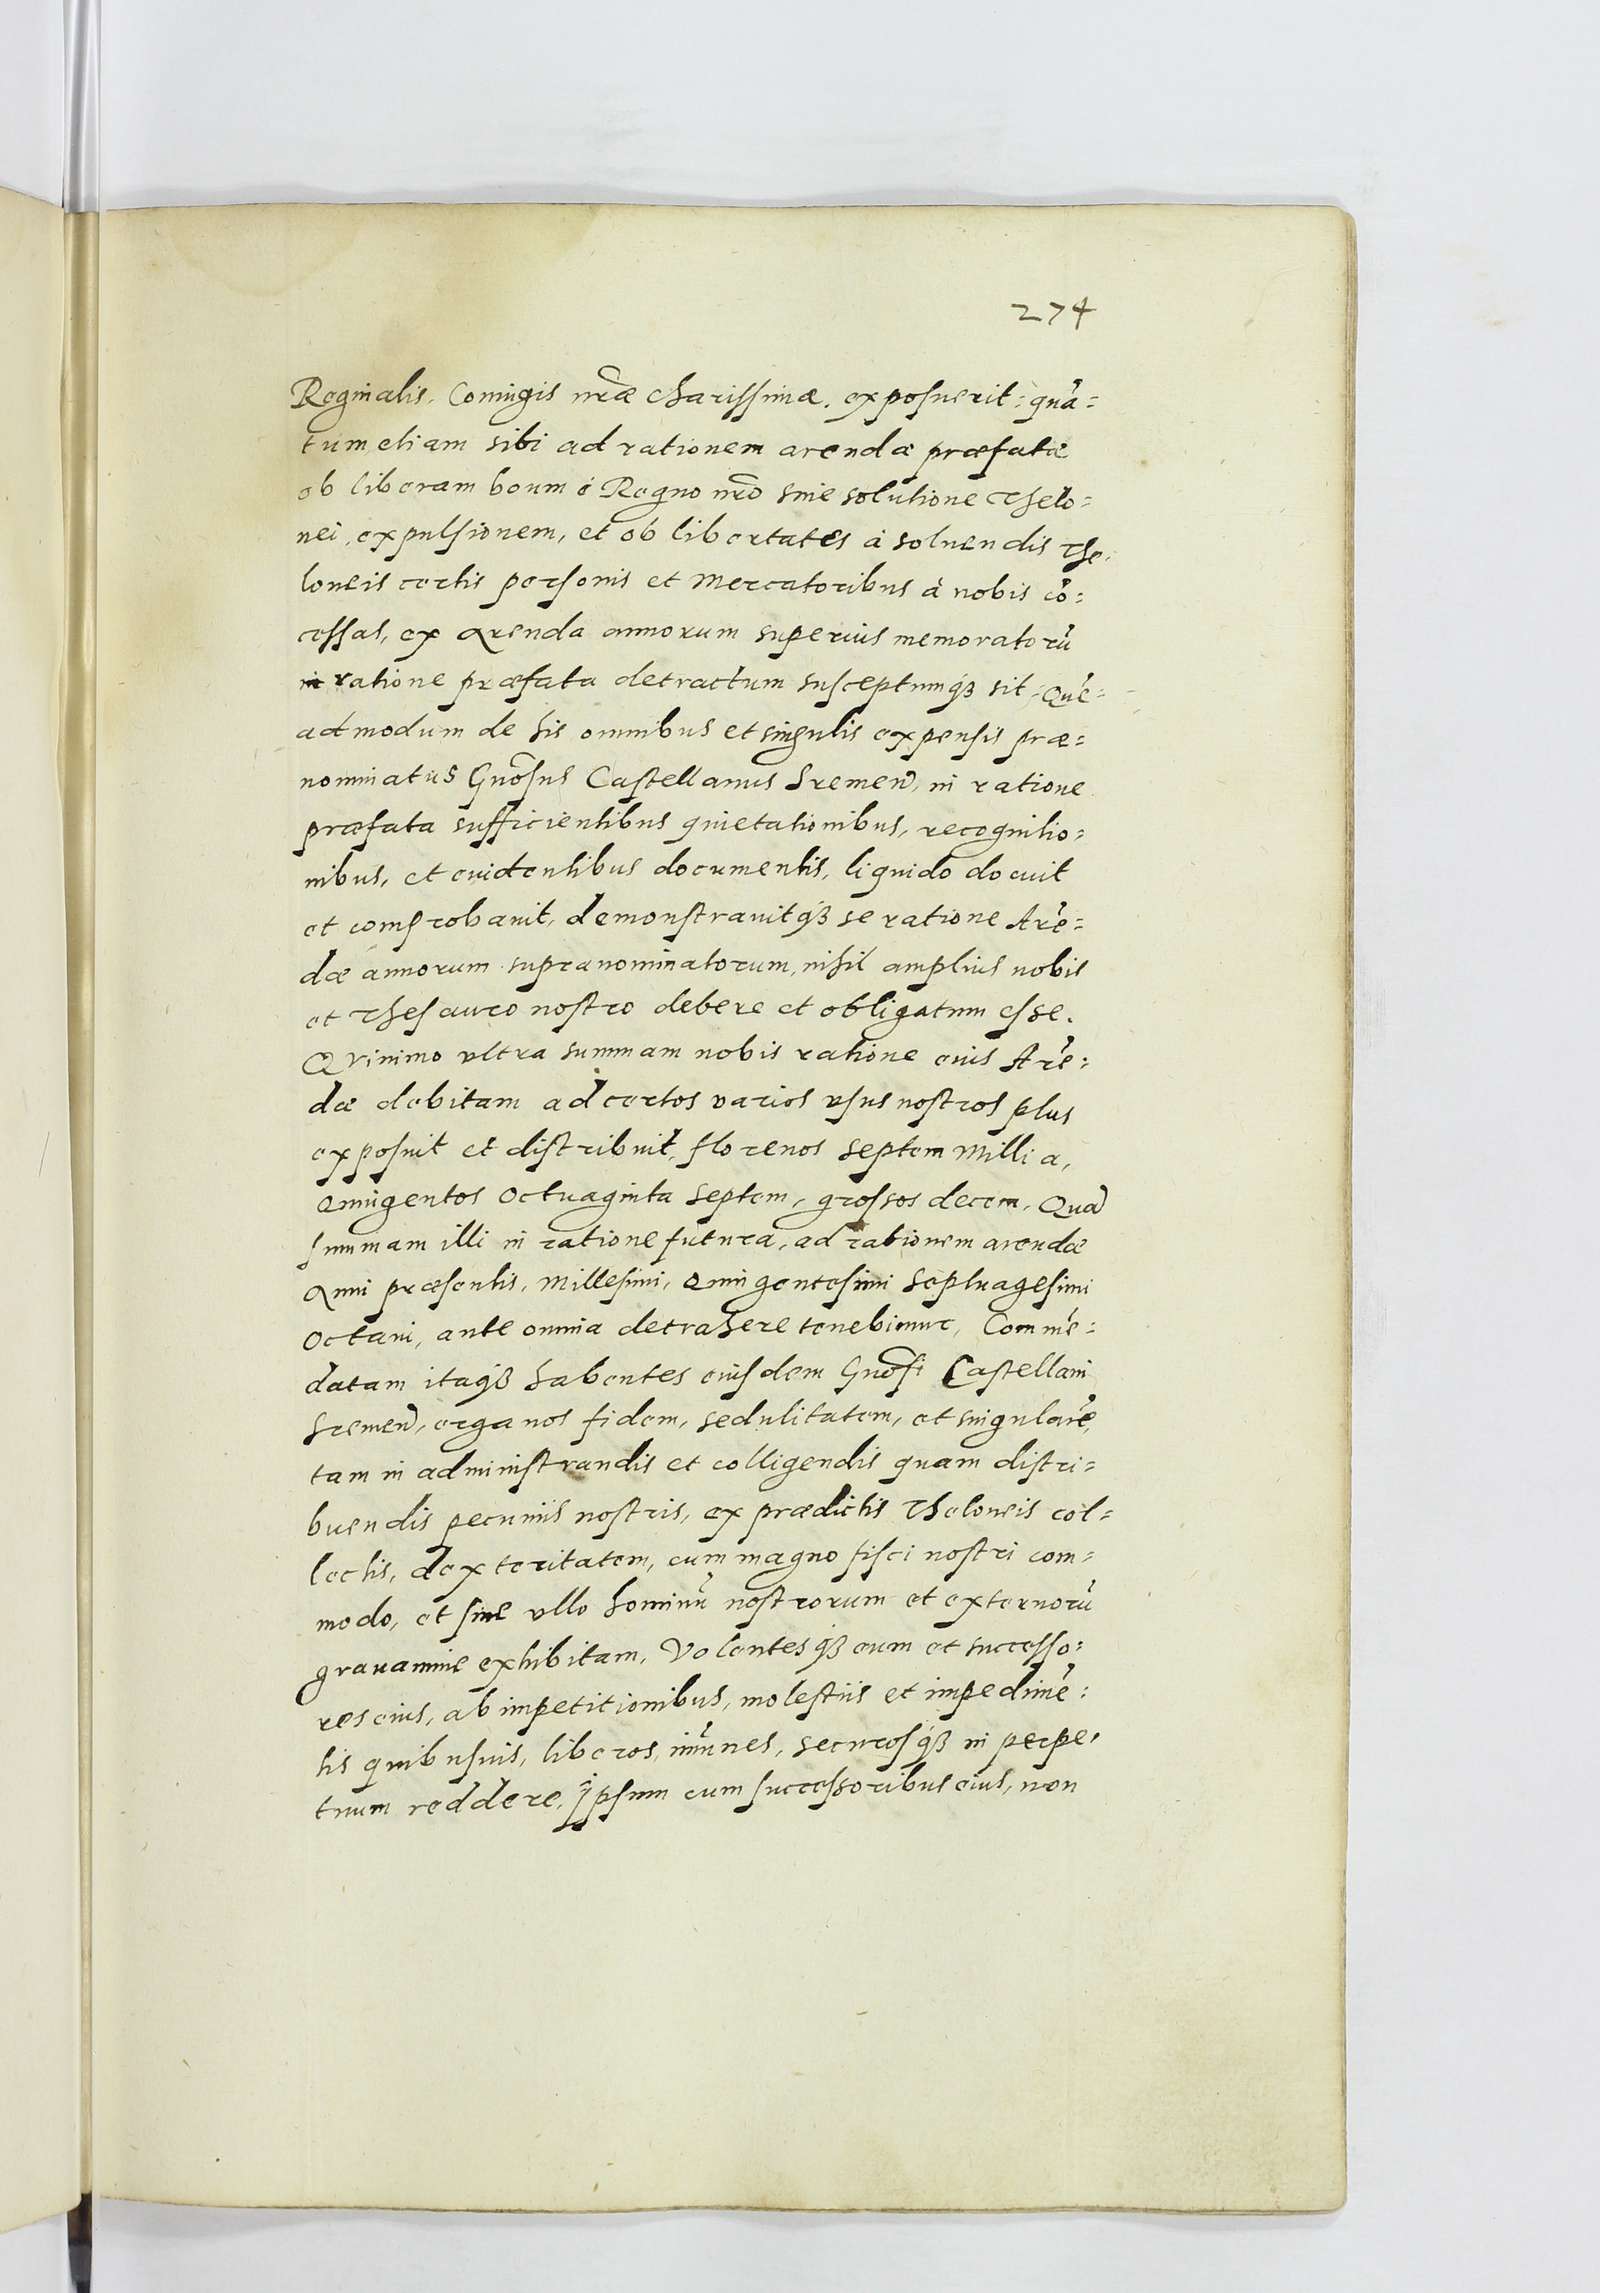 274
Reginalis, Coniugis nrãe charissimæ, exposuerit: quã=
tum etiam sibi ad rationem arendæ præfatæ
ob liberam boum è Regno nrõ sine solutione Thelo=
nei, expulsionem, et ob libertates à soluendis The-
loneis certis personis et Mercatoribus à nobis cõ=
cessas, ex Arenda annorum superius memoratorũ
in ratione præfata detractum susceptumq; sit, Quẽ=
admodum de his omnibus et singulis expensis præ=
nominatus Gnõsus Castellanus Sremeñ, in ratione
præfata sufficientibus quietationibus, recognitio=
nibus, et euidentibus documentis, liquido docuit
et comprobauit, demonstrauitq; se ratione Arẽ=
dæ annorum supranominatorum, nihil amplius nobis
et Thesauro nostro debere et obligatum esse.
Quinimo vltra summam nobis ratione eius Arẽ=
dæ debitam ad certos varios vsus nostros plus
exposuit et distribuit, florenos septem Millia,
Quingentos Octuaginta septem, grossos decem, Quã
summam illi in ratione futura, ad rationem arendæ
Anni præsentis, Millesimi, Quingentesimi Septuagesimi
Octaui, ante omnia detrahere tenebimur, Commẽ=
datam itaq; habentes eiusdem Gnõsi Castellani
Sremeñ, erga nos fidem, sedulitatem, et singularẽ,
tam in administrandis et colligendis quam distri=
buendis pecuniis nostris, ex prædictis Theloneis col=
lectis, dexteritatem, cum magno fisci nostri com=
modo, et sine vllo hominũ nostrorum et externorũ
grauamine exhibitam, Volentesq; eum et successo=
res eius, ab impetitionibus, molestiis et impedimẽ=
tis quibusuis, liberos, imũnes, securosq; in perpe-
tuum reddere, Ipsum cum successoribus eius, non